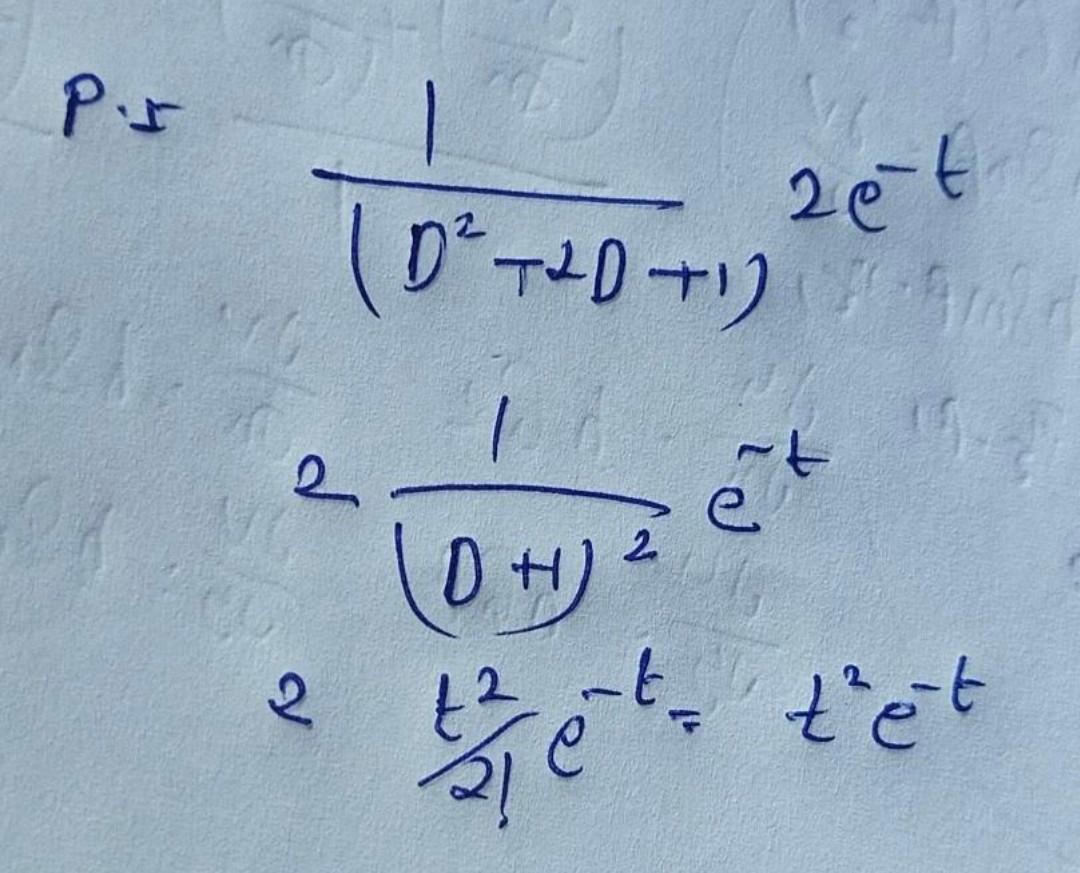 P.I 1/(D² + 2D + 1) 2e^-t
2 1/(D+1)² e^-t
2 t²/2! e^-t = t²e^-t